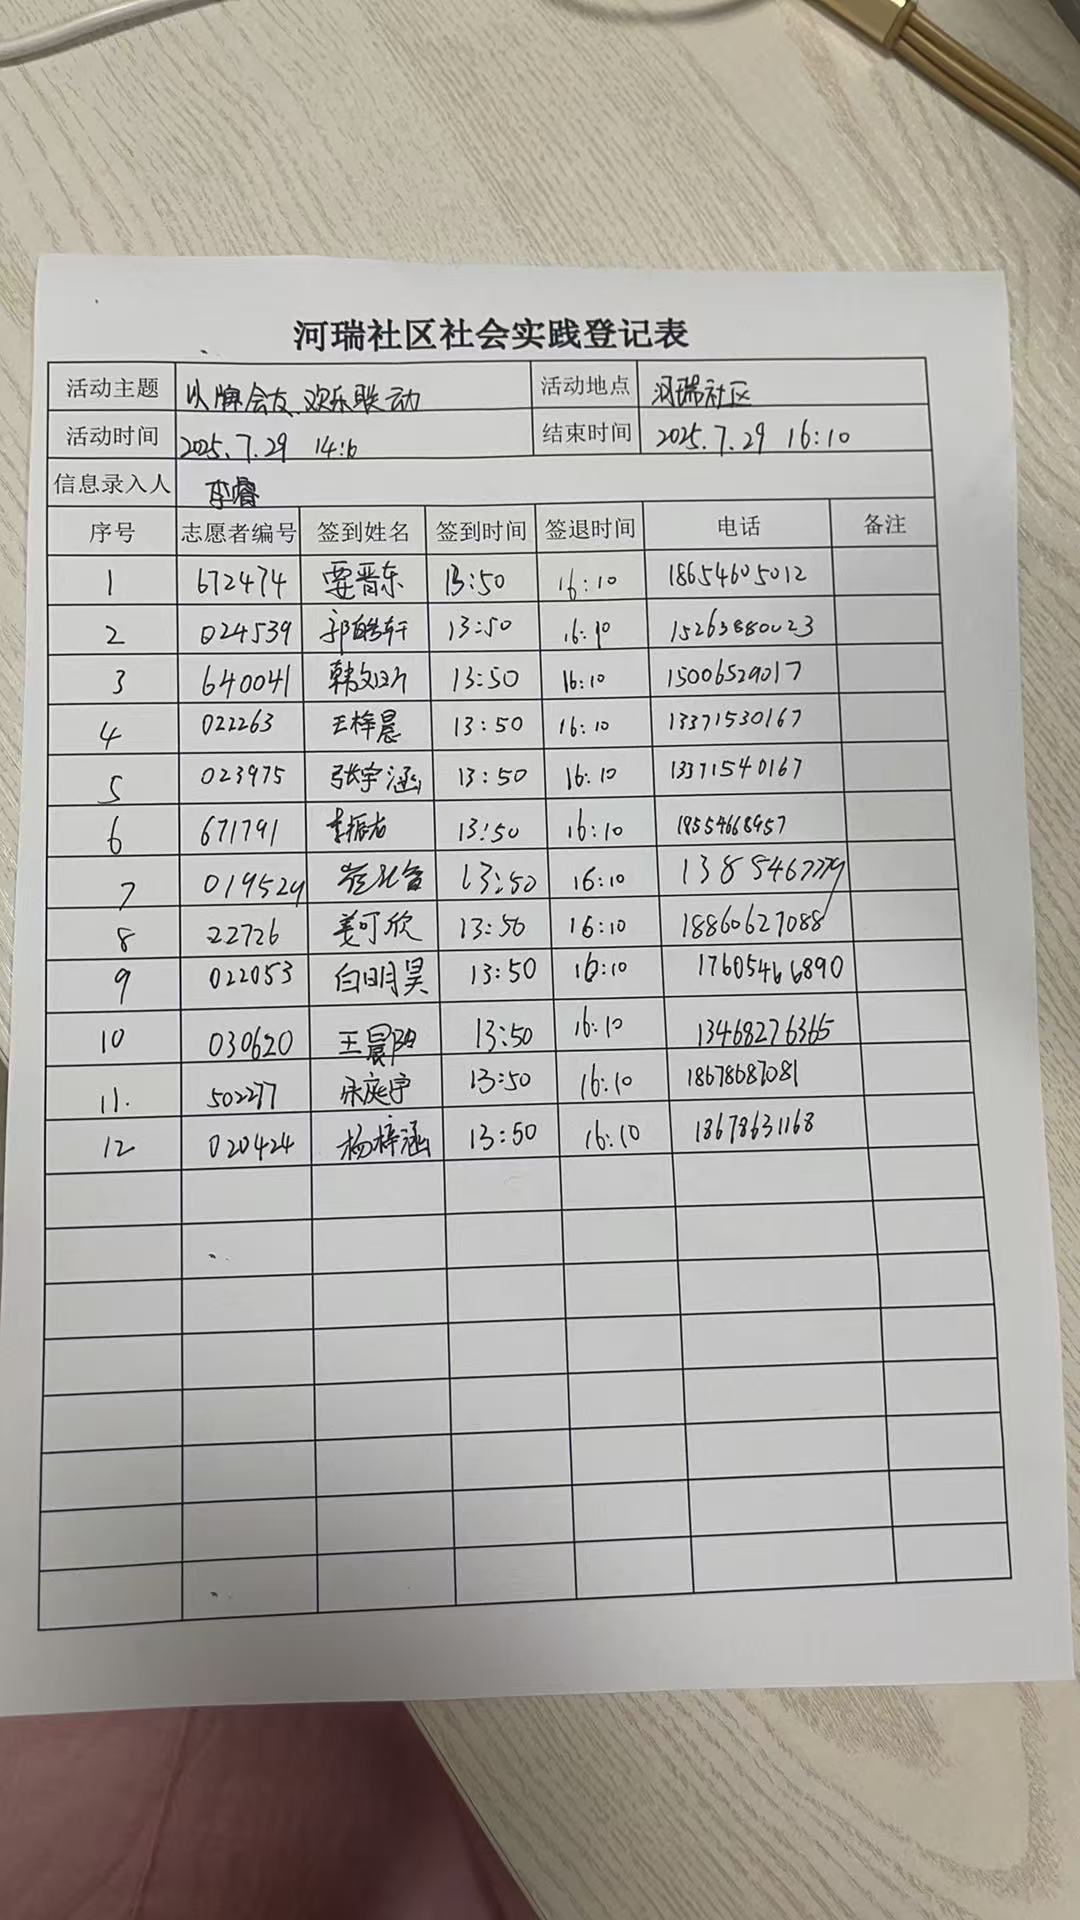 河瑞社区社会实践登记表
活动主题 以牌会友、欢乐联动 活动地点 河瑞社区
活动时间 2025.7.29 14:10 结束时间 2025.7.29 16:10
信息录入人 李睿
序号 志愿者编号 签到姓名 签到时间 签退时间 电话 备注
1 672474 晋东 13:50 16:10 18654605012
2 024539 郭皓轩 13:50 16:10 15263880023
3 640041 韩 13:50 16:10 15006529017
4 022263 王梓晨 13:50 16:10 13371530167
5 023975 张宇涵 13:50 16:10 13371540167
6 671791 李振 13:50 16:10 18554668957
7 019529 13:50 16:10
8 22726 姜可欣 13:50 16:10 18860627088
9 022053 白明昊 13:50 16:10 17605466890
10 030620 王晨阳 13:50 16:10 13468276365
11. 502277 宋庭宇 13:50 16:10 18678687081
12 020424 杨梓涵 13:50 16:10 18678631168